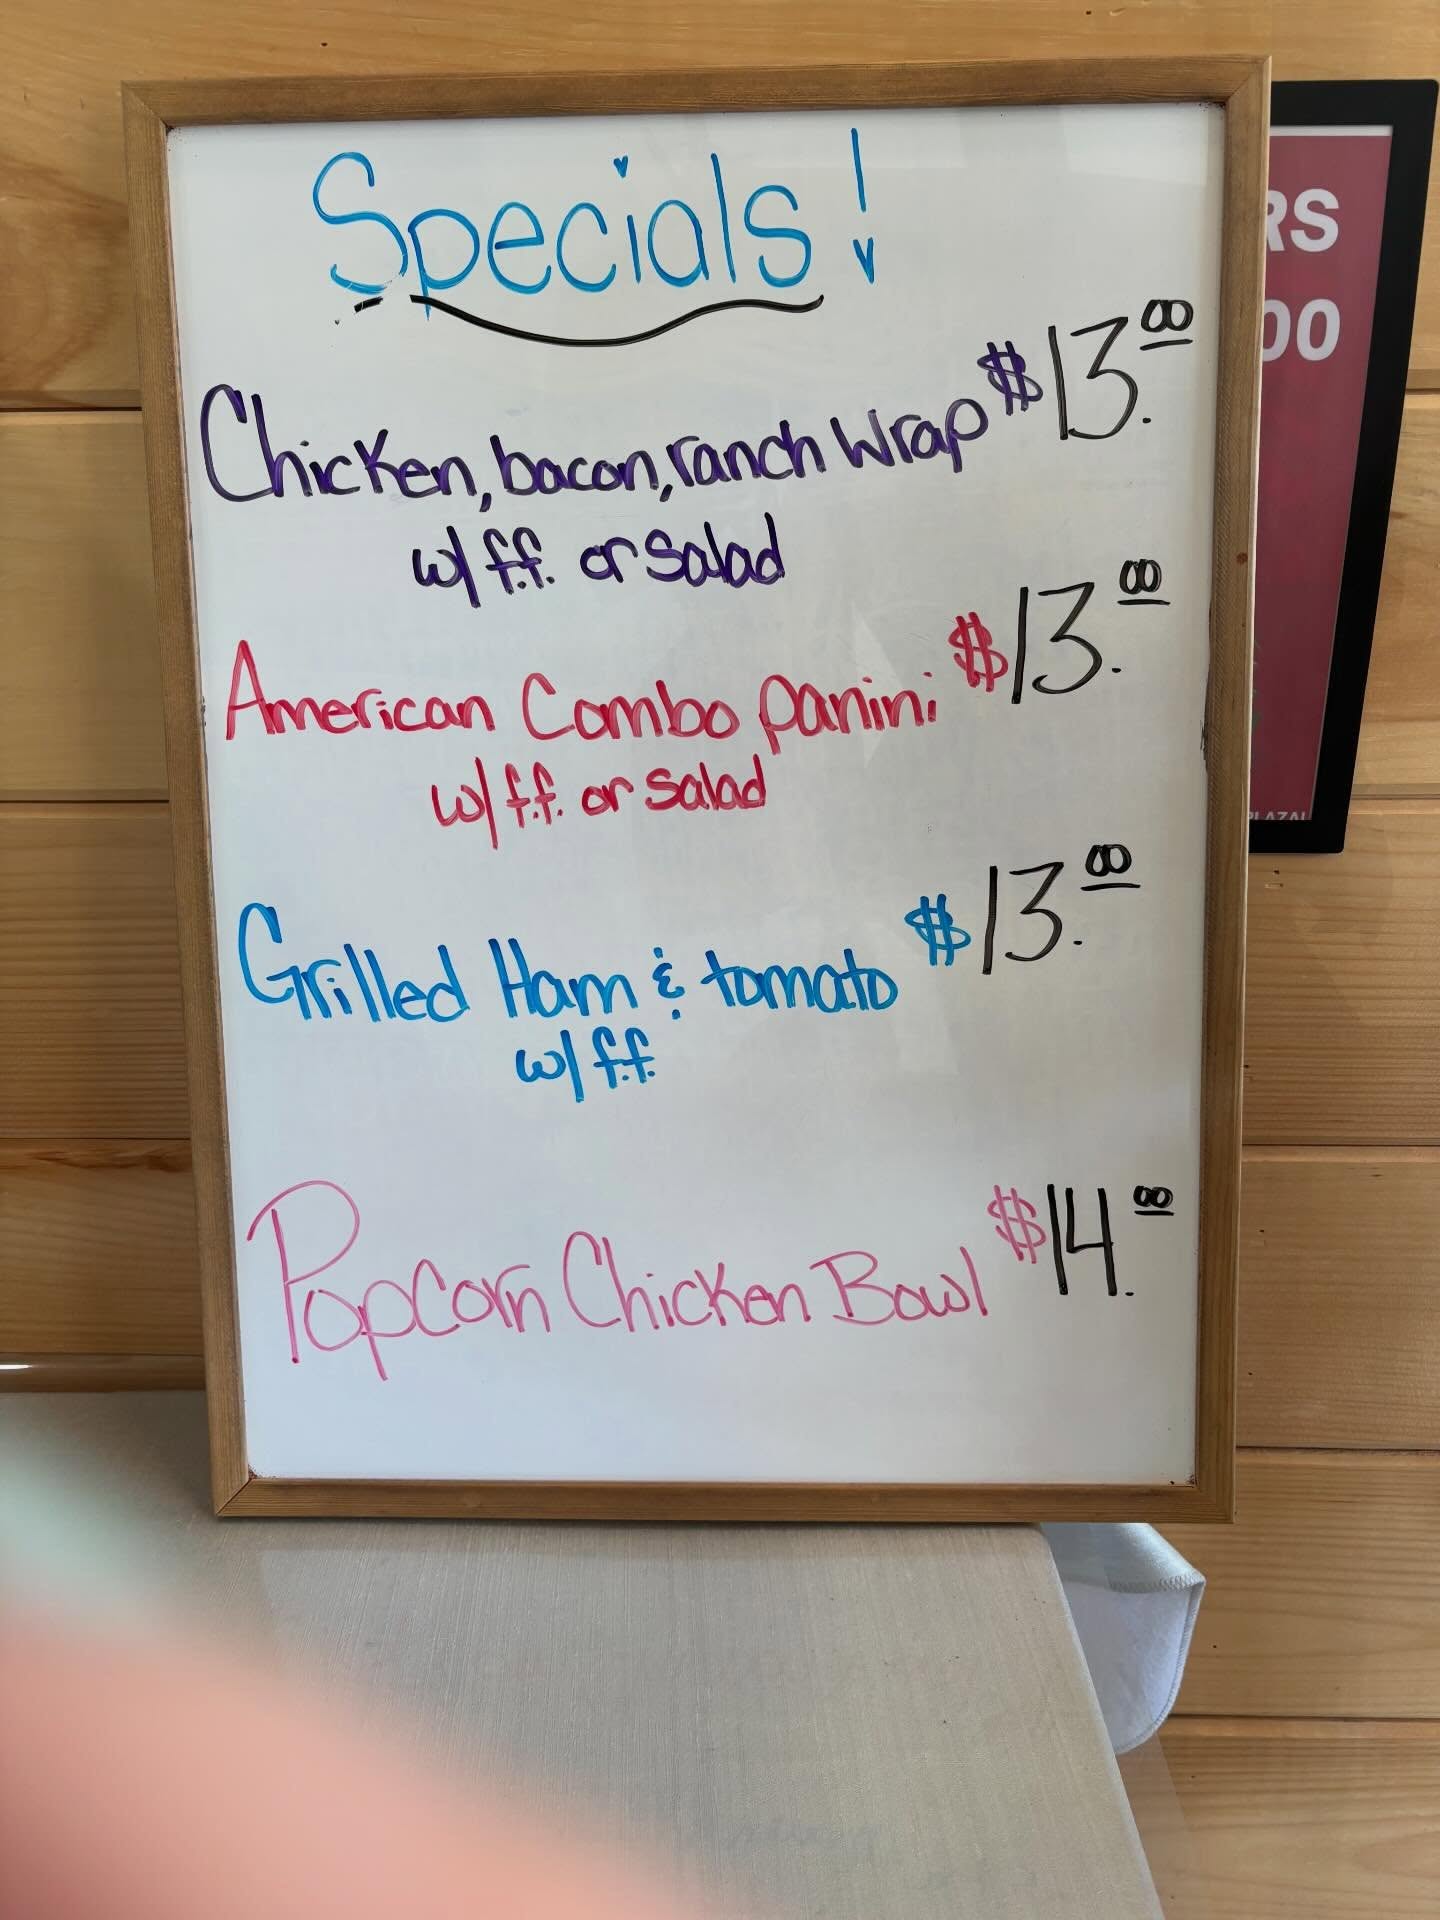 Specials!
Chicken, bacon, ranch Wrap $13.00
w/ f.f. or Salad
American Combo Panini $13.00
w/ f.f. or Salad
Grilled Ham & tomato $13.00
w/ f.f.
Popcorn Chicken Bowl $14.00
RS
00
PLAZA!